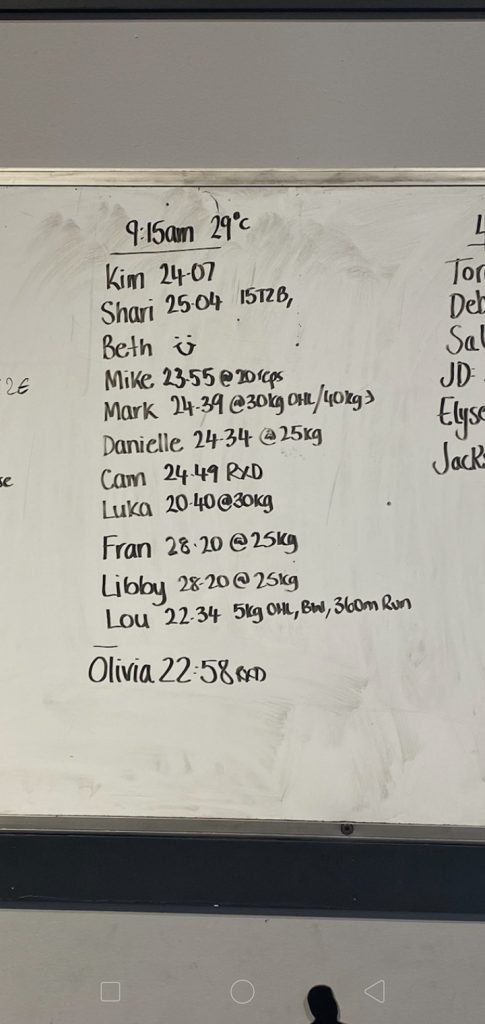 9:15am 29°c
Kim 24-07
Shari 25.04 15T2B,
Beth
Mike 23.55 @ 20 reps
Mark 24-39 @30kg OHL/40kg
Danielle 24-34 @25kg
Cam 24.49 RXD
Luka 20-40@30kg
Fran 28.20 @25kg
Libby 28-20@25kg
Lou 22.34 5kg OHL, BW, 360m Run
Olivia 22:58 RXD
Deb
JD:
Elyse